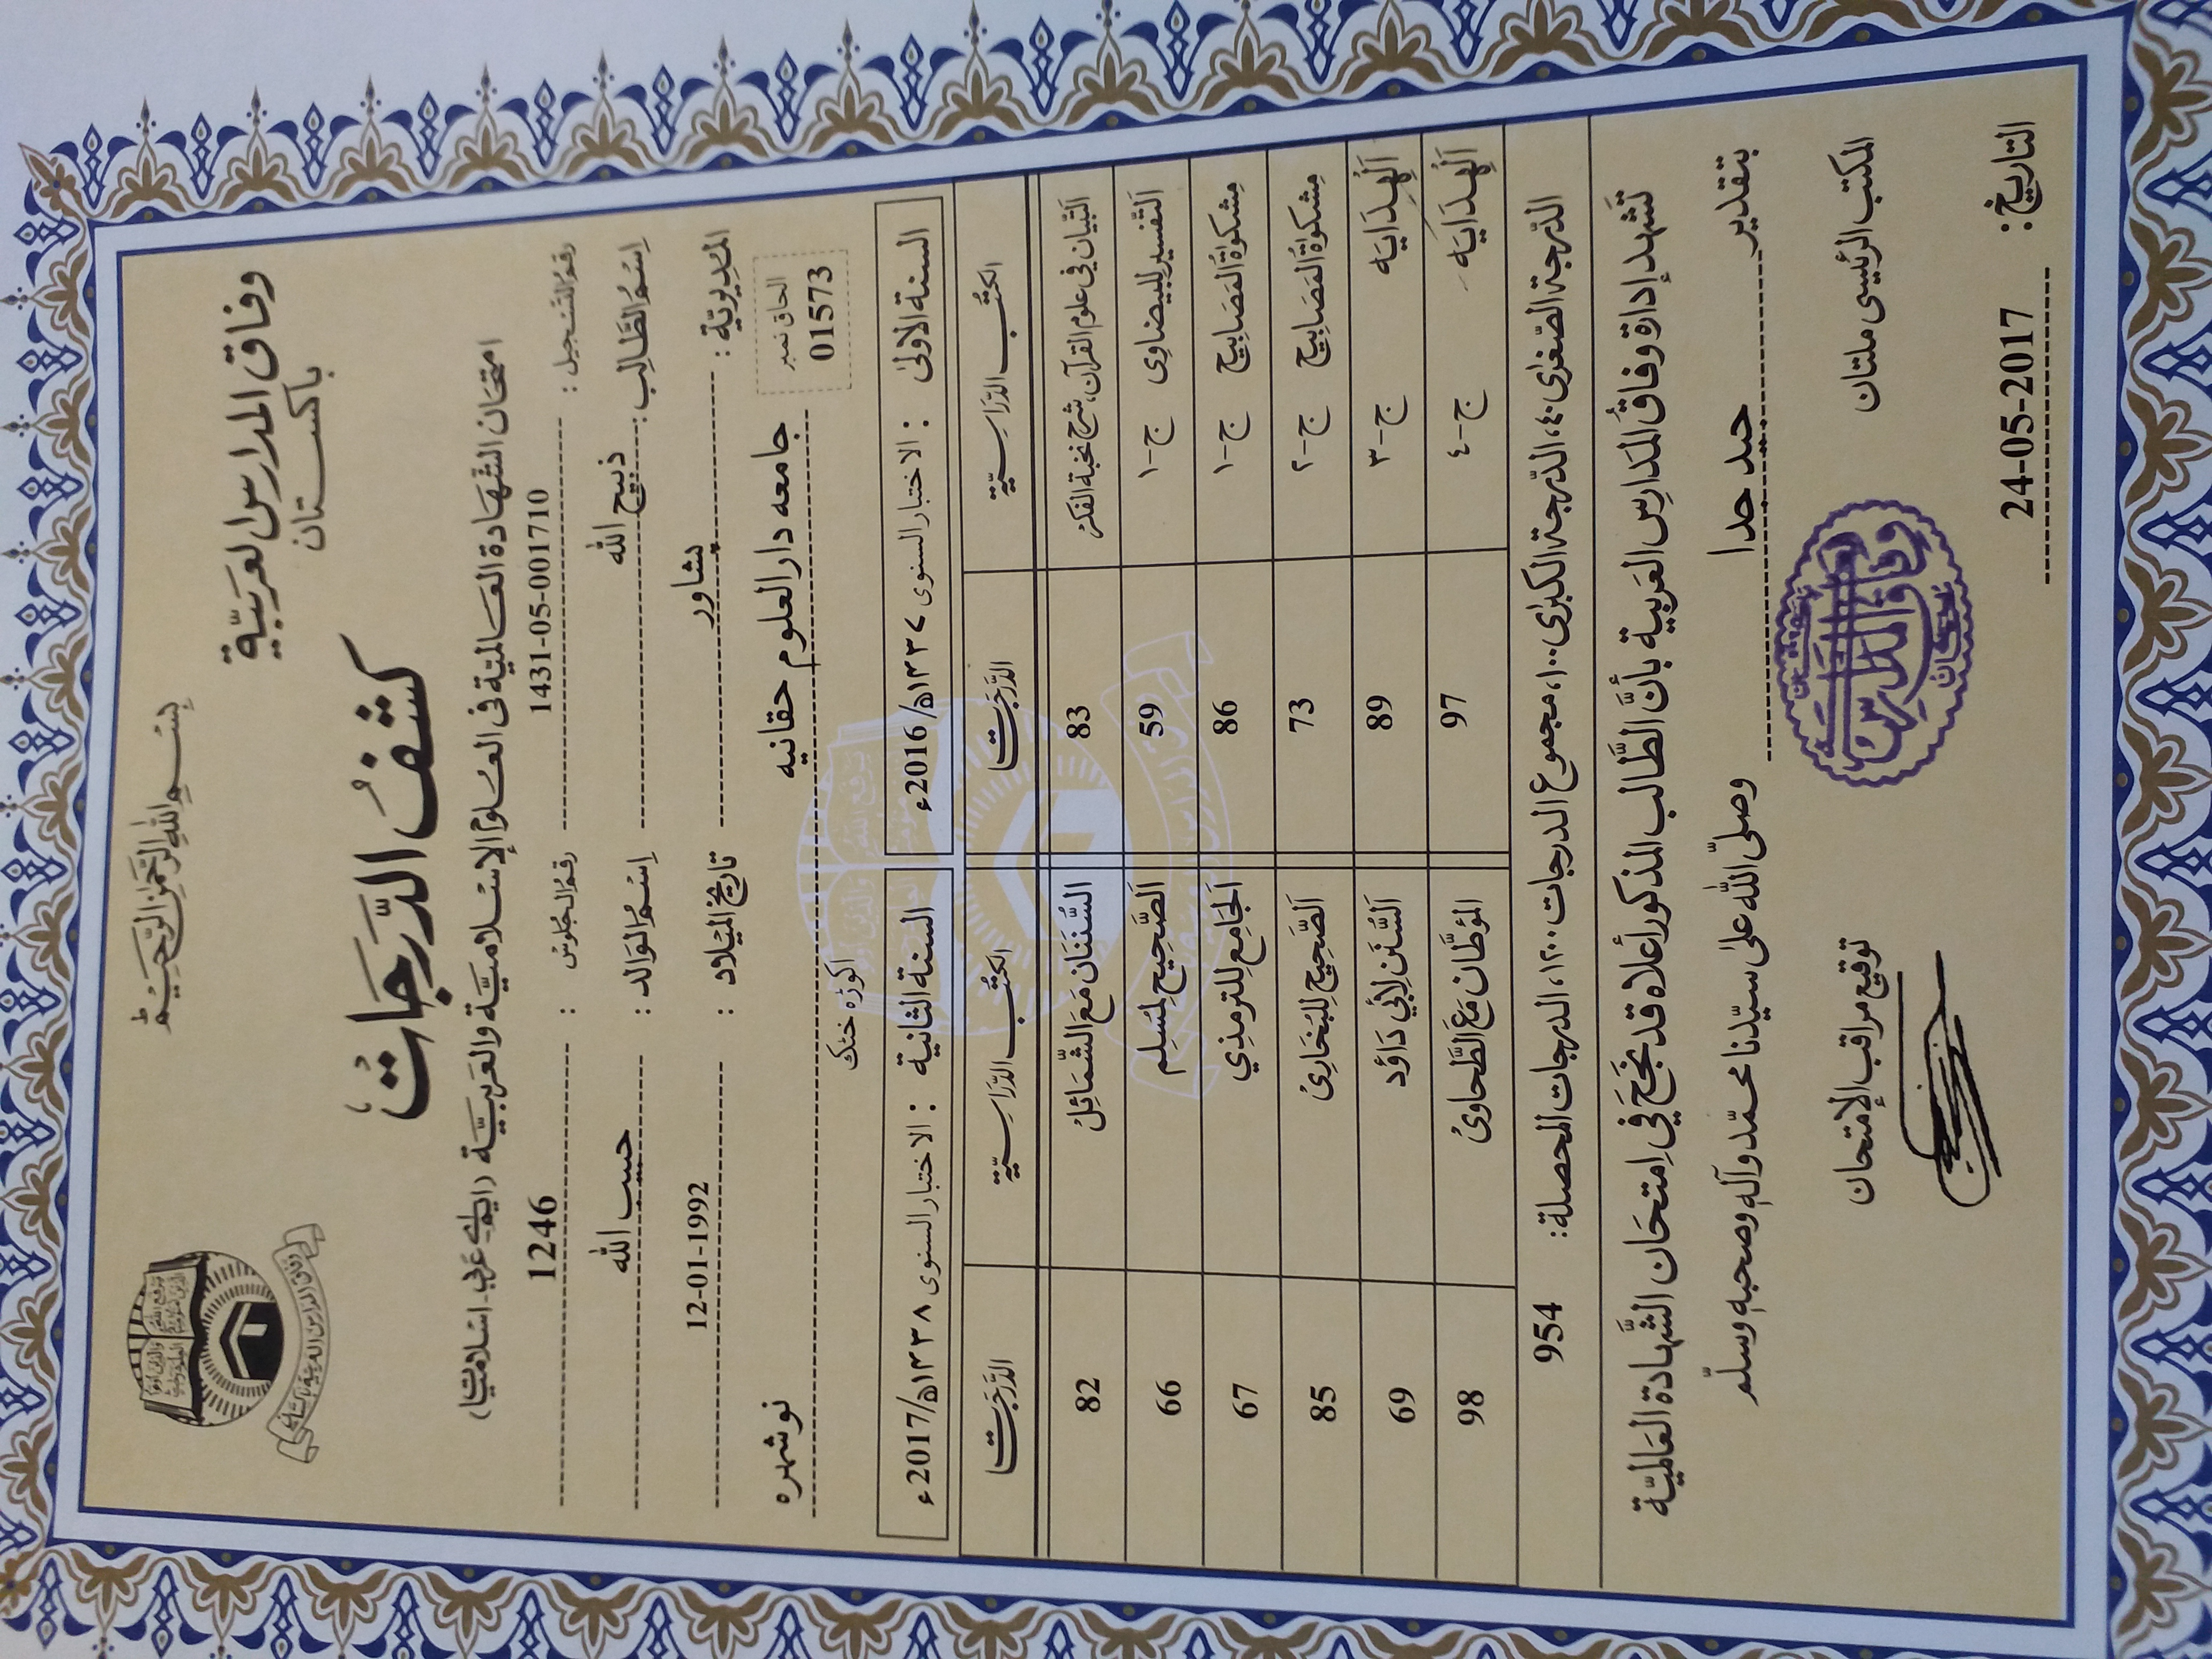 بسم الله الرحمن الرحيم
وفاق المدارس العربية
باكستان
كشف الدرجات
امتحان الشهادة العالمية فى العلوم الإسلامية والعربية (ايم اے عربى - اسلاميات)
رقم التسجيل : 1431-05-001710 رقم الجلوس : 1246
اسم الطالب : ذبيح الله اسم الوالد : حبيب الله
المديوية : پشاور تاريخ الميلاد : 12-01-1992
الحاق نمبر
01573
جامعه دارالعلوم حقانيه اكوڑه خٹك نوشهره
السنة الاولى : الاختبار السنوى ١٤٣٧ھ/2016ء السنة الثانية : الاختبار السنوى ١٤٣٨ھ/2017ء
الكتب الدراسية الدرجات الكتب الدراسية الدرجات
التبيان في علوم القرآن، شرح نخبة الفكر 83 السننان مع الشمائل 82
التفسير للبيضاوى ج-١ 59 الصحيح لمسلم 66
مشكوٰة المصابيح ج-١ 86 الجامع للترمذي 67
مشكوٰة المصابيح ج-٢ 73 الصحيح للبخارى 85
الهدايه ج-٣ 89 السنن لابي داؤد 69
الهدايه ج-٤ 97 المؤطان مع الطحاوى 98
الدرجة الصغرى ٤٠، الدرجة الكبرى ١٠٠، مجموع الدرجات ١٢٠٠، الدرجات المحصلة : 954
تشهد إدارة وفاق المدارس العربية بأن الطالب المذكور أعلاه قد نجح في امتحان الشهادة العالمية
بتقدير جيد جدا وصلى الله على سيدنا محمد وآله وصحبه وسلم
المكتب الرئيسى ملتان توقيع مراقب الإمتحان
وفاق المدارس
التاريخ : 24-05-2017